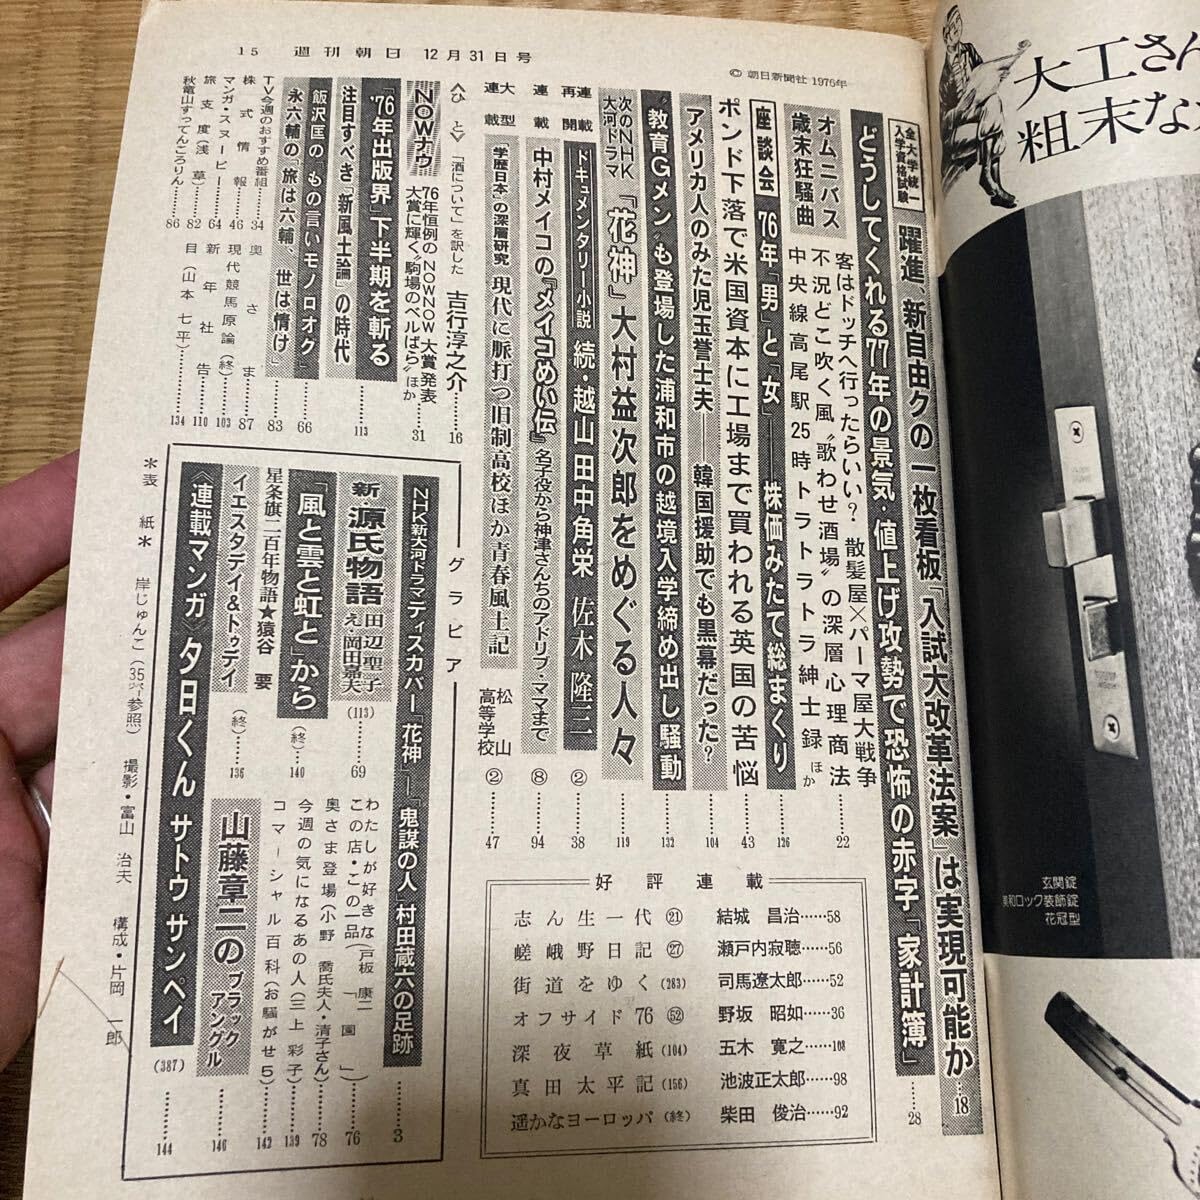 15 週刊朝日 12月31日号
© 朝日新聞社 1976年
全大学統一入学資格試験
躍進 新自由クの一枚看板「入試大改革法案」は実現可能か…18
どうしてくれる77年の景気・値上げ攻勢で恐怖の赤字「家計簿」……28
オムニバス
歳末狂騒曲
客はドッチへ行ったらいい? 散髪屋×パーマ屋大戦争
不況どこ吹く風〝歌わせ酒場〟の深層心理商法
中央線高尾駅25時トラトラトラ紳士録 ほか……22
座談会 76年「男」と「女」——株価みたて総まくり……126
ポンド下落で米国資本に工場まで買われる英国の苦悩……43
アメリカ人のみた児玉誉士夫——韓国援助でも黒幕だった?……104
〝教育Gメン〟も登場した浦和市の越境入学締め出し騒動……132
次のNHK大河ドラマ 「花神」大村益次郎をめぐる人々……119
連載再開 ドキュメンタリー小説 続・越山田中角栄 佐木隆三 ②……38
連載 中村メイコの『メイコめい伝』名子役から神津さんちのアドリブ・ママまで ⑧……94
大型連載 「学歴日本」の深層研究 現代に脈打つ旧制高校ほか青春風土記 松山高等学校 ②……47
〈ひと〉「酒について」を訳した 吉行淳之介……16
NOWナウ 76年恒例のNOWNOW大賞発表 大賞に輝く〝駒場のベルばら〟ほか……31
'76年出版界 下半期を斬る
注目すべき「新風土論」の時代……113
飯沢匡の「もの言いモノロオグ」……66
永六輔の「旅は六輔、世は情け」……83
TV今週のおすすめ番組……34
株式情報……46
マンガ・スヌーピー……64
旅支度(浅草)……82
秋竜山すってんころりん……86
奥さま……87
現代競馬原論(終)……103
新年社告……110
目(山本七平)……134
グラビア
NHK新大河ドラマディスカバー「花神」—「鬼謀の人」村田蔵六の足跡……3
新源氏物語 田辺聖子 え・岡田嘉夫 (113)……69
「風と雲と虹と」から
星条旗二百年物語★猿谷 要 (終)……140
イエスタデイ&トゥデイ (終)……136
わたしが好きな(戸板康二「園」)……76
この店・この一品
奥さま登場(小野 喬氏夫人・清子さん)……78
今週の気になるあの人(三上彩子)……139
コマーシャル百科(お騒がせ5)……142
山藤章二のブラックアングル……146
〈連載マンガ〉夕日くん サトウサンペイ (387)……144
*表紙* 岸じゅんこ(35㌻参照) 撮影・富山 治夫 構成・片岡 一郎
好評連載
志ん生一代 ㉑ 結城 昌治……58
嵯峨野日記 ㉗ 瀬戸内寂聴……56
街道をゆく (283) 司馬遼太郎……52
オフサイド76 ㊾ 野坂 昭如……36
深夜草紙 (104) 五木 寛之……108
真田太平記 (156) 池波正太郎……98
遥かなヨーロッパ (終) 柴田 俊治……92
大工さん
粗末な
玄関錠
美和ロック装飾錠
花冠型